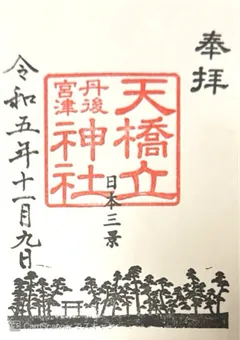 奉拝
天橋立
丹後
宮津
神社
日本三景
令和五年十一月九日
CamScanner